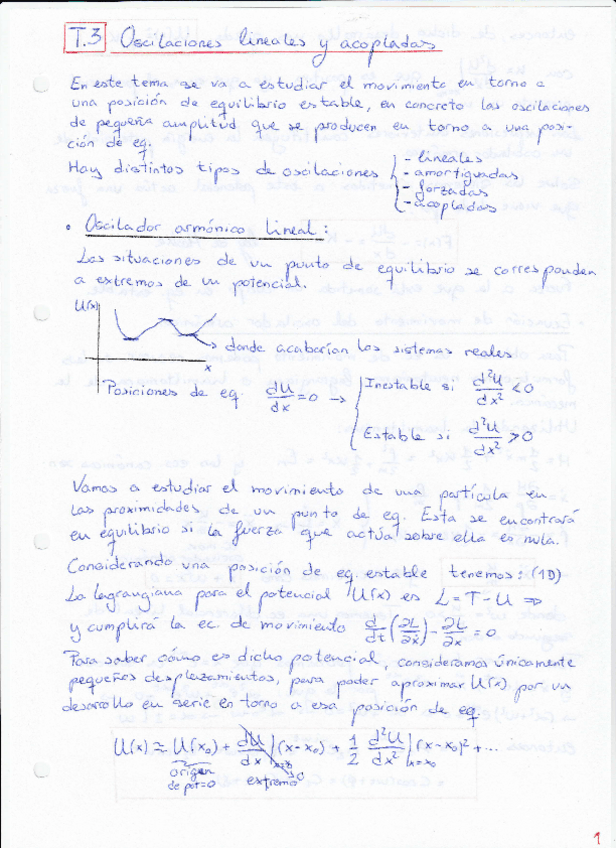 T.3 Oscilaciones lineales y acopladas
En este tema se va a estudiar el movimiento en torno a
una posición de equilibrio estable, en concreto las oscilaciones
de pequeña amplitud que se producen en torno a una posi-
ción de eq.
Hay distintos tipos de oscilaciones
- lineales
- amortiguadas
- forzadas
- acopladas
• Oscilador armónico lineal:
Las situaciones de un punto de equilibrio se corresponden
a extremos de un potencial.
U(x)
→ donde acabarían los sistemas reales
x
Posiciones de eq. dU/dx = 0 → Inestable si d²U/dx² < 0
Estable si d²U/dx² > 0
Vamos a estudiar el movimiento de una partícula en
las proximidades de un punto de eq. Esta se encontrará
en equilibrio si la fuerza que actúa sobre ella es nula.
Considerando una posición de eq. estable tenemos: (1D)
La lagrangiana para el potencial U(x) es L = T - U ⇒
y cumplirá la ec. de movimiento d/dt (∂L/∂ẋ) - ∂L/∂x = 0
Para saber cómo es dicho potencial, consideramos únicamente
pequeños desplazamientos, para poder aproximar U(x) por un
desarrollo en serie en torno a esa posición de eq.
U(x) ≈ U(x₀) + dU/dx|x=x₀ (x-x₀) + 1/2 d²U/dx²|x=x₀ (x-x₀)² + ...
origen
de pot=0
extremo
0
1